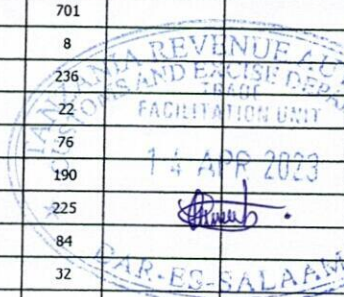 701
8
236
22
76
190
225
84
32
TANZANIA REVENUE AU
CUSTOMS AND EXCISE DEPA
TRADE
FACILITATION UNIT
14 APR 2023
DAR-ES-SALAAM